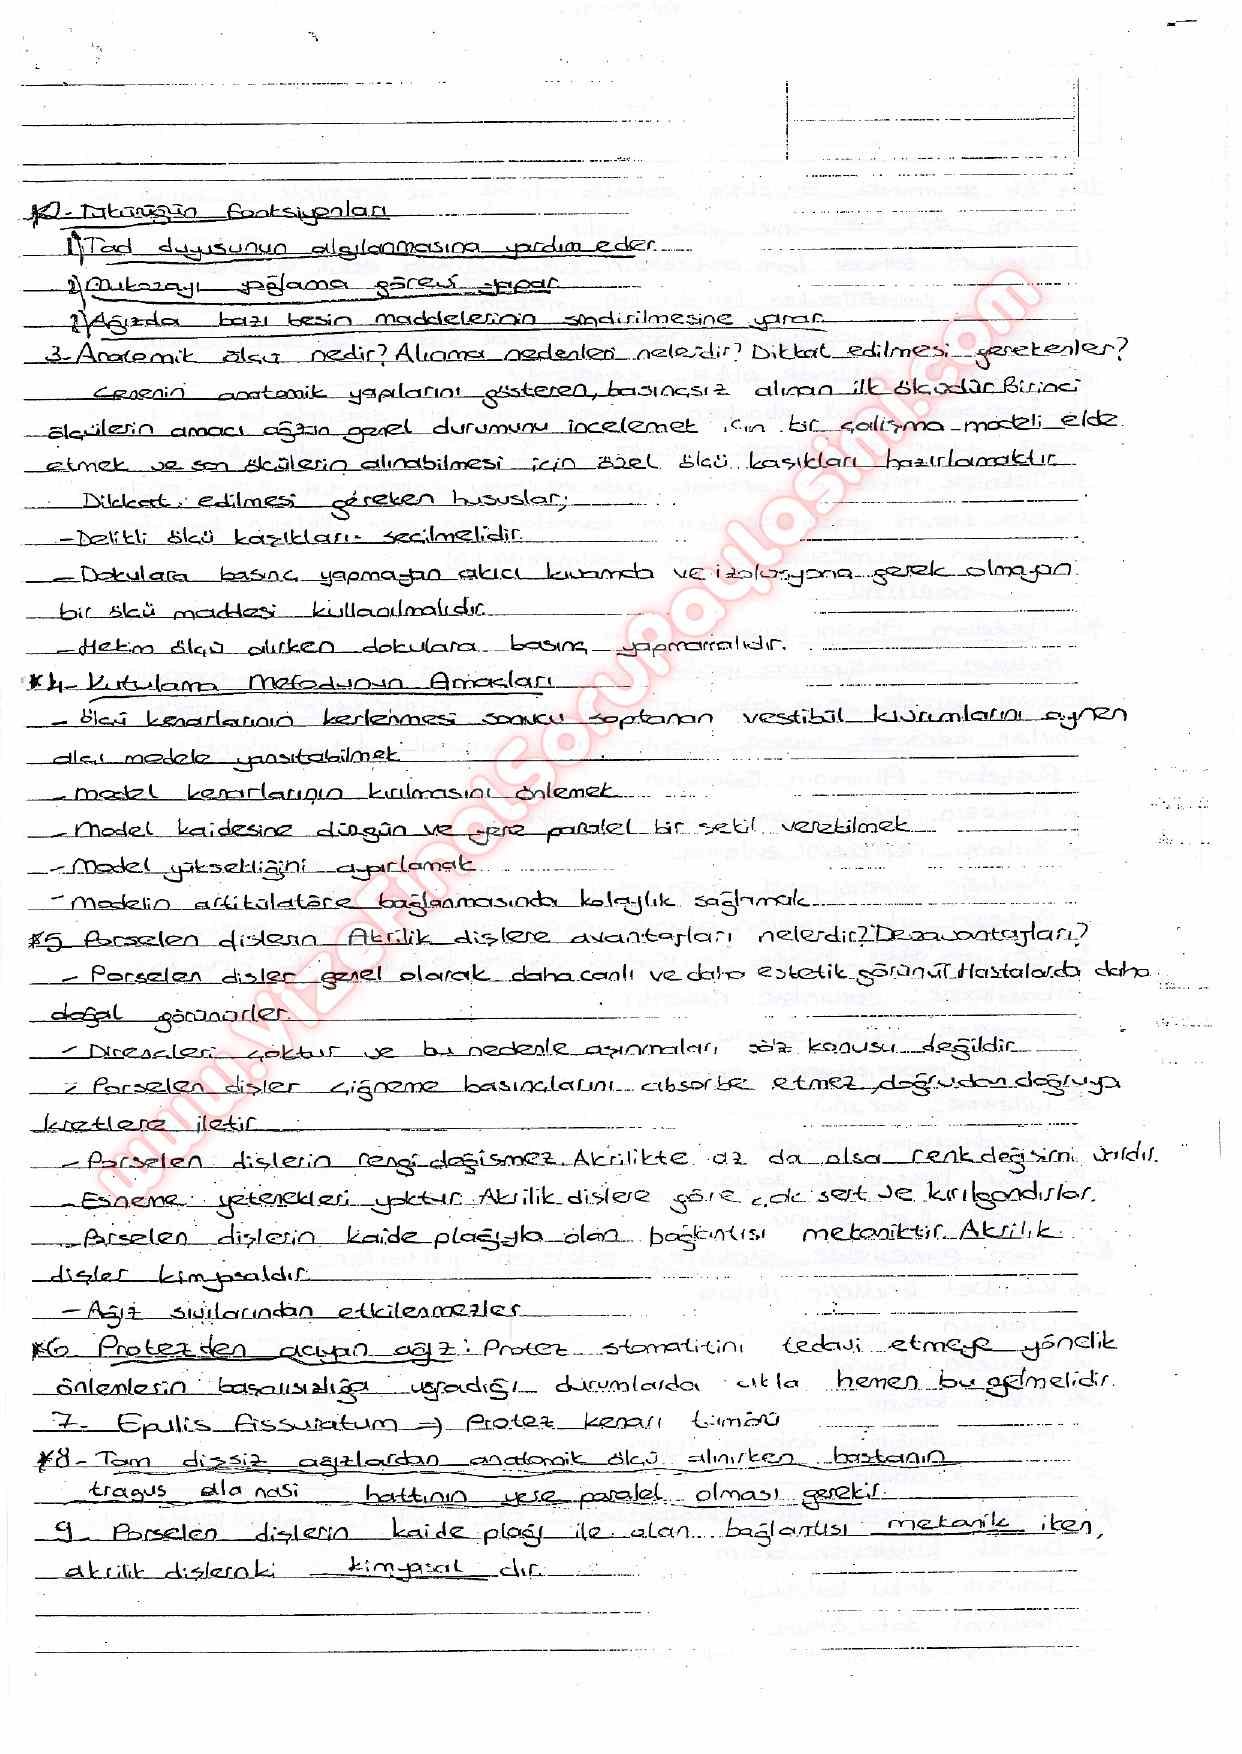 *2- Tükürüğün fonksiyonları
1) Tad duyusunun algılanmasına yardım eder.
2) Mukozayı yağlama görevi yapar
3) Ağızda bazı besin maddelerinin sindirilmesine yarar
3- Anatomik ölçü nedir? Alınma nedenleri nelerdir? Dikkat edilmesi gerekenler?
Çenenin anatomik yapılarını gösteren, basınçsız alınan ilk ölçüdür. Birinci
ölçülerin amacı ağzın genel durumunu incelemek için bir çalışma modeli elde
etmek ve son ölçülerin alınabilmesi için özel ölçü kaşıkları hazırlamaktır.
Dikkat edilmesi gereken hususlar;
- Delikli ölçü kaşıkları seçilmelidir.
- Dokulara basınç yapmayan akıcı kıvamda ve izolasyona gerek olmayan
bir ölçü maddesi kullanılmalıdır.
- Hekim ölçü alırken dokulara basınç yapmamalıdır.
*4- Kutulama Metodunun Amaçları
- Ölçü kenarlarının sonucu saptanan vestibül kıvrımlarını aynen
alçı modele yansıtabilmek
- model kenarlarının kırılmasını önlemek
- Model kaidesine düzgün ve yere paralel bir şekil verebilmek
- Model yüksekliğini ayarlamak
- modelin artikülatöre bağlanmasında kolaylık sağlamak
*5 Porselen dişlerin Akrilik dişlere avantajları nelerdir? Dezavantajları?
- Porselen dişler genel olarak daha canlı ve daha estetik görünür. Hastalarda daha
doğal görünürler.
- Dirençleri çoktur ve bu nedenle aşınmaları söz konusu değildir
- Porselen dişler çiğneme basınçlarını absorbe etmez, doğrudan doğruya
kretlere iletir
- Porselen dişlerin rengi değişmez. Akrilikte az da olsa renk değişimi vardır.
- Esneme yetenekleri yoktur. Akrilik dişlere göre çok sert ve kırılgandırlar.
- Porselen dişlerin kaide plağıyla olan bağlantısı mekaniktir. Akrilik
dişler kimyasaldır.
- Ağız sıvılarından etkilenmezler
*6 Protezden acıyan ağız: Protez stomatitini tedavi etmeye yönelik
önlemlerin başarısızlığa uğradığı durumlarda akla hemen bu gelmelidir.
7- Epulis Fissuratum => Protez kenarı tümörü
*8- Tam dişsiz ağızlardan anatomik ölçü alınırken hastanın
tragus ala nasi hattının yere paralel olması gerekir.
9- Porselen dişlerin kaide plağı ile olan bağlantısı mekanik iken,
akrilik dişlerinki kimyasal dır.
www.vizefinalsorupaylasimi.com